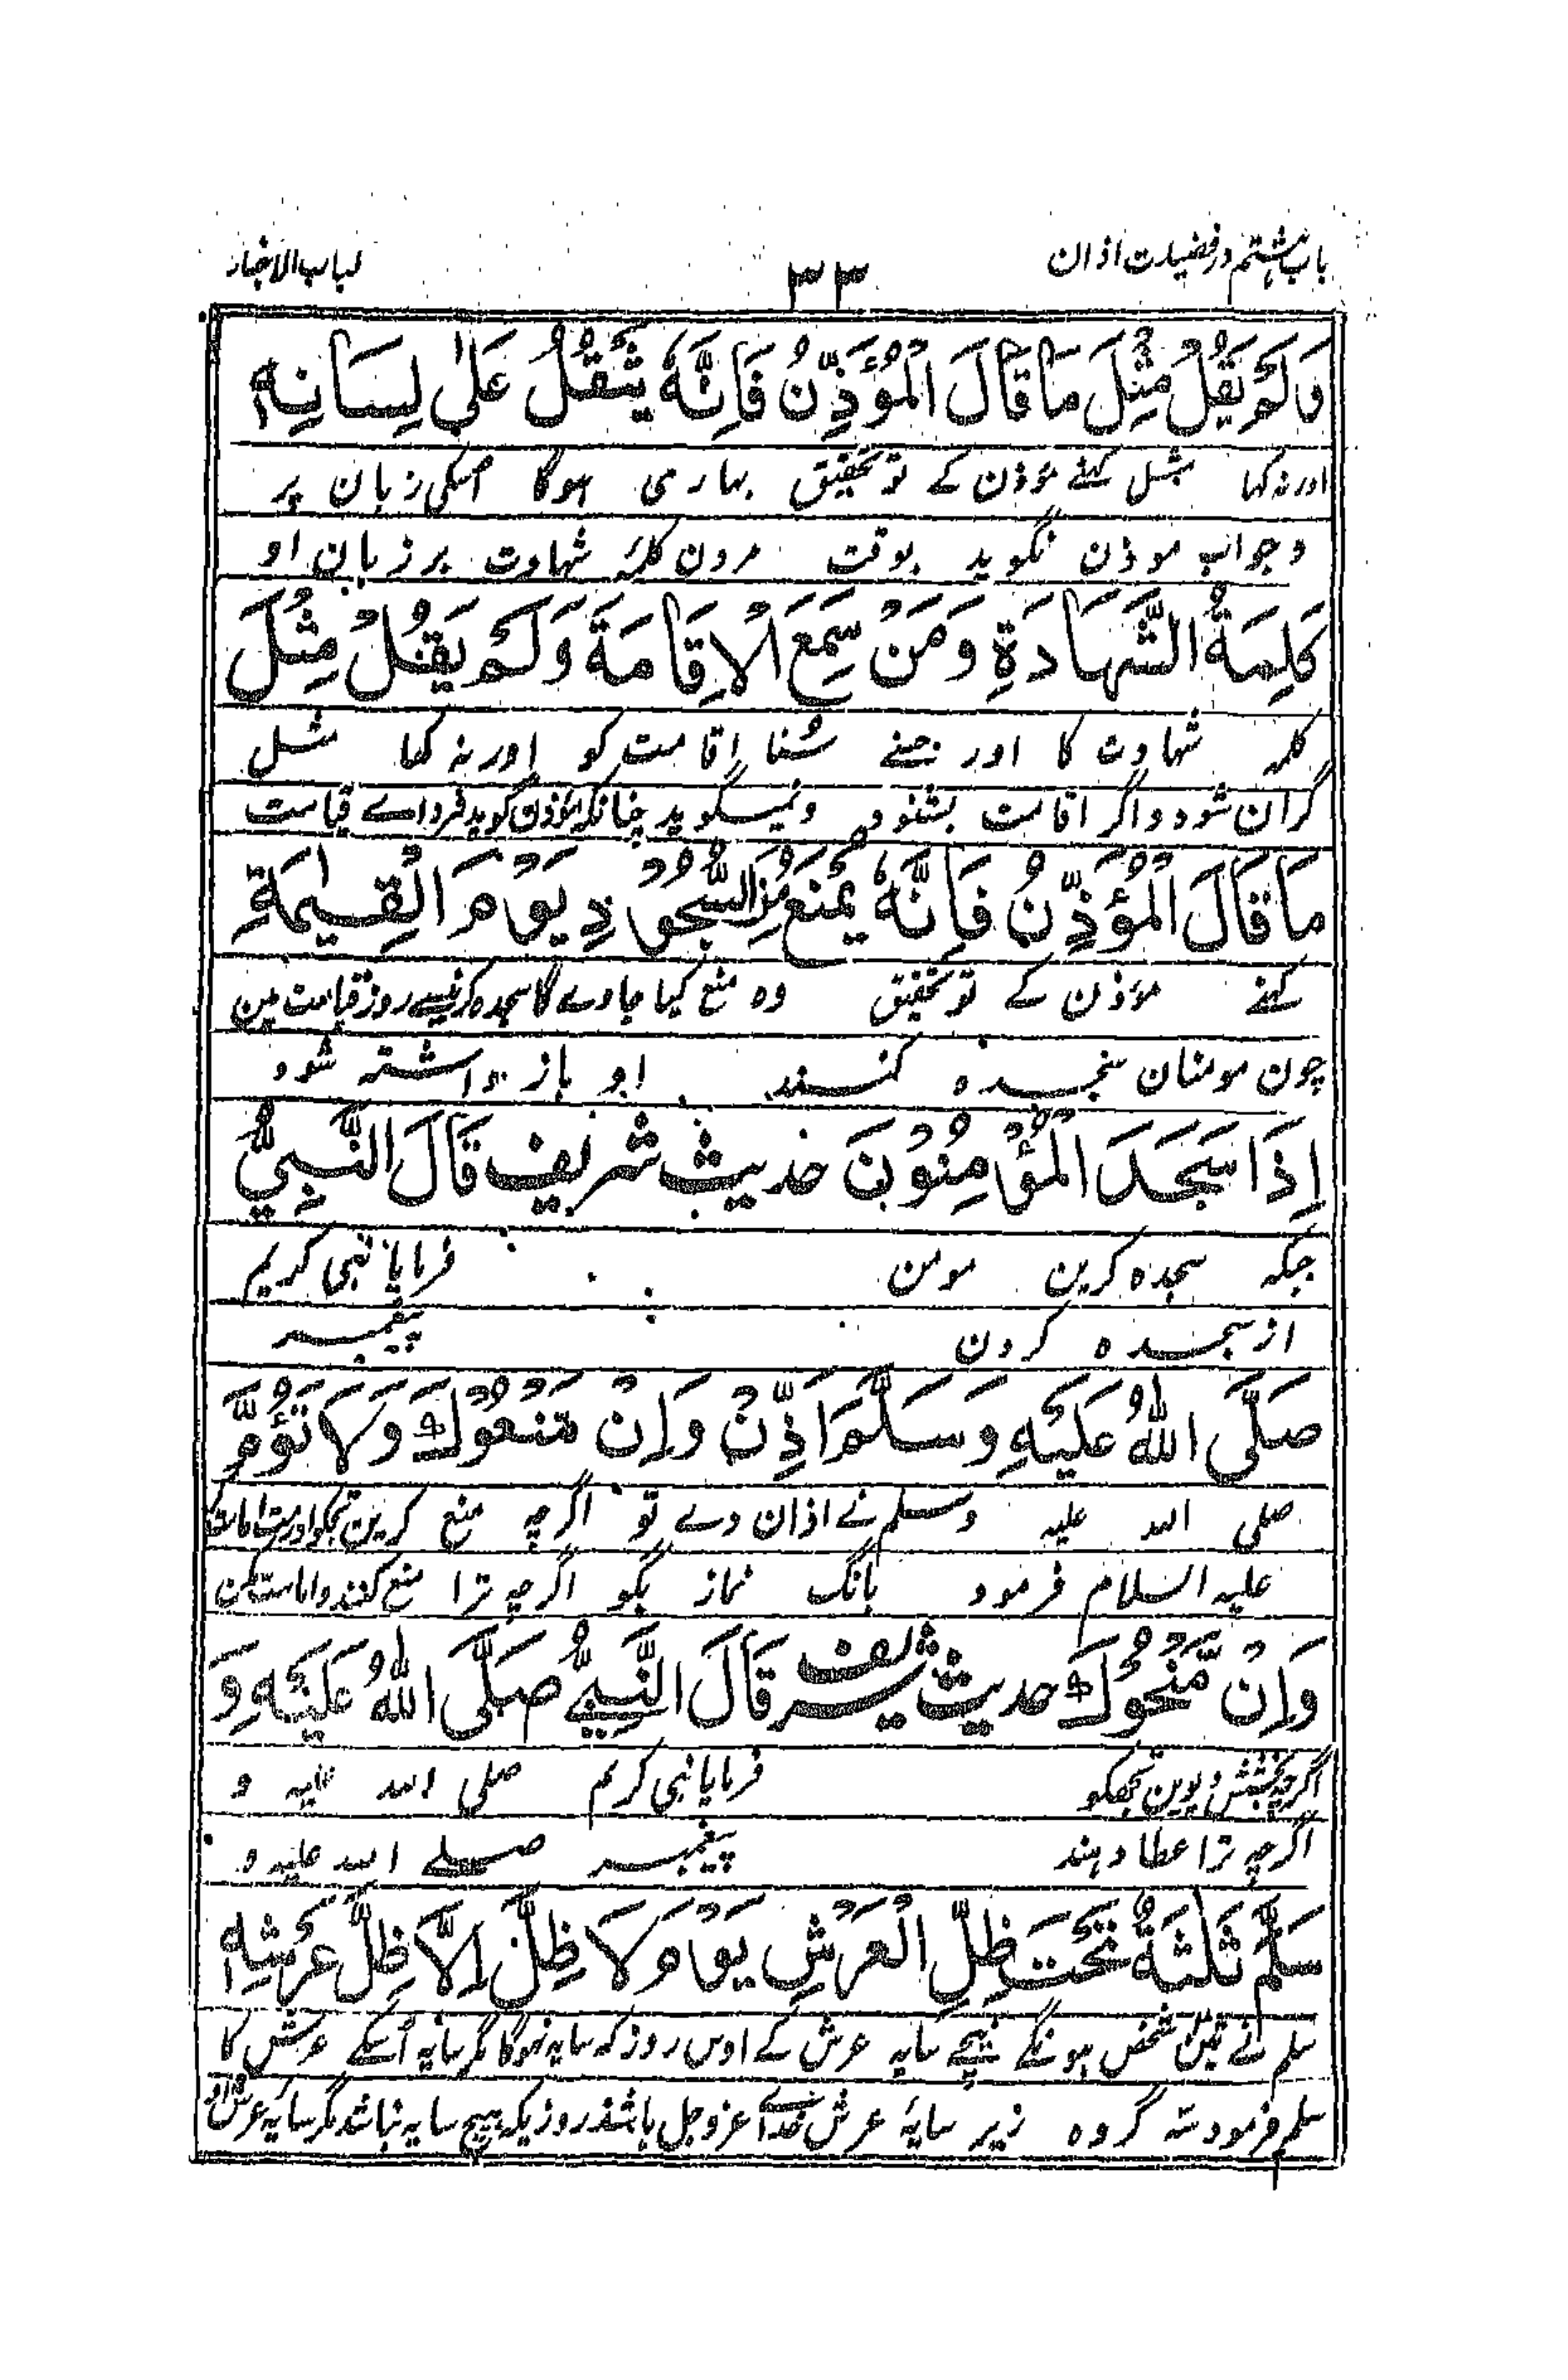 باب ہشتم در فضیلت اذان ۳۳ لباب الاخبار
وَلَمْ يَقُلْ مِثْلَ مَا قَالَ الْمُؤَذِّنُ فَاِنَّهٗ يَثْقُلُ عَلٰى لِسَانِهٖ
اور نہ کہا مثل کہنے مؤذن کے تو تحقیق بھاری ہوگا اسکی زبان پر
وجواب موذن نگوید بوقت مردن کلمۂ شہادت بر زبان او
كَلِمَةُ الشَّهَادَةِ وَمَنْ سَمِعَ الْاِقَامَةَ وَلَمْ يَقُلْ مِثْلَ
کلمہ شہادت کا اور جسنے سُنا اقامت کو اور نہ کہا مثل
گران شود واگر اقامت بشنود ونمیگوید چنانکہ مؤذن گوید فرداے قیامت
مَا قَالَ الْمُؤَذِّنُ فَاِنَّهٗ يُمْنَعُ مِنَ السُّجُوْدِ يَوْمَ الْقِيٰمَةِ
کہنے مؤذن کے تو تحقیق وہ منع کیا جاوے گا سجدہ کرنیسے روز قیامت مین
چون مومنان سجدہ کنند او باز داشتہ شود
اِذَا سَجَدَ الْمُؤْمِنُوْنَ حدیث شریف قَالَ النَّبِيُّ
جبکہ سجدہ کرین مومن فرمایا نبی کریم
از سجدہ کردن پیغمبر
صَلَّى اللّٰهُ عَلَيْهِ وَسَلَّمَ اَذِّنْ وَاِنْ مَنَعُوْكَ وَلَا تَؤُمَّ
صلی اللہ علیہ وسلم نے اذان دے تو اگرچہ منع کرین تجکو اور مت امامت کر
علیہ السلام فرمود بانگ نماز بگو اگرچہ ترا منع کنند وامامت مکن
وَاِنْ مَّنَحُوْكَ حدیث شریف قَالَ النَّبِيُّ صَلَّى اللّٰهُ عَلَيْهِ وَ
اگرچہ بخشش دیوین تجھکو فرمایا نبی کریم صلی اللہ علیہ و
اگرچہ ترا عطا دہند پیغمبر صلے اللہ علیہ و
سَلَّمَ ثَلٰثَةٌ تَحْتَ ظِلِّ الْعَرْشِ يَوْمَ لَا ظِلَّ اِلَّا ظِلَّ عَرْشِهٖ
سلم نے تین شخص ہونگے نیچے سایہ عرش کے اوس روز کہ سایہ نہوگا مگر سایہ اُسکے عرش کا
سلم فرمود سہ گروہ زیر سایۂ عرش خداے عزوجل باشند روزیکہ ہیچ سایہ نباشد مگر سایۂ عرش او